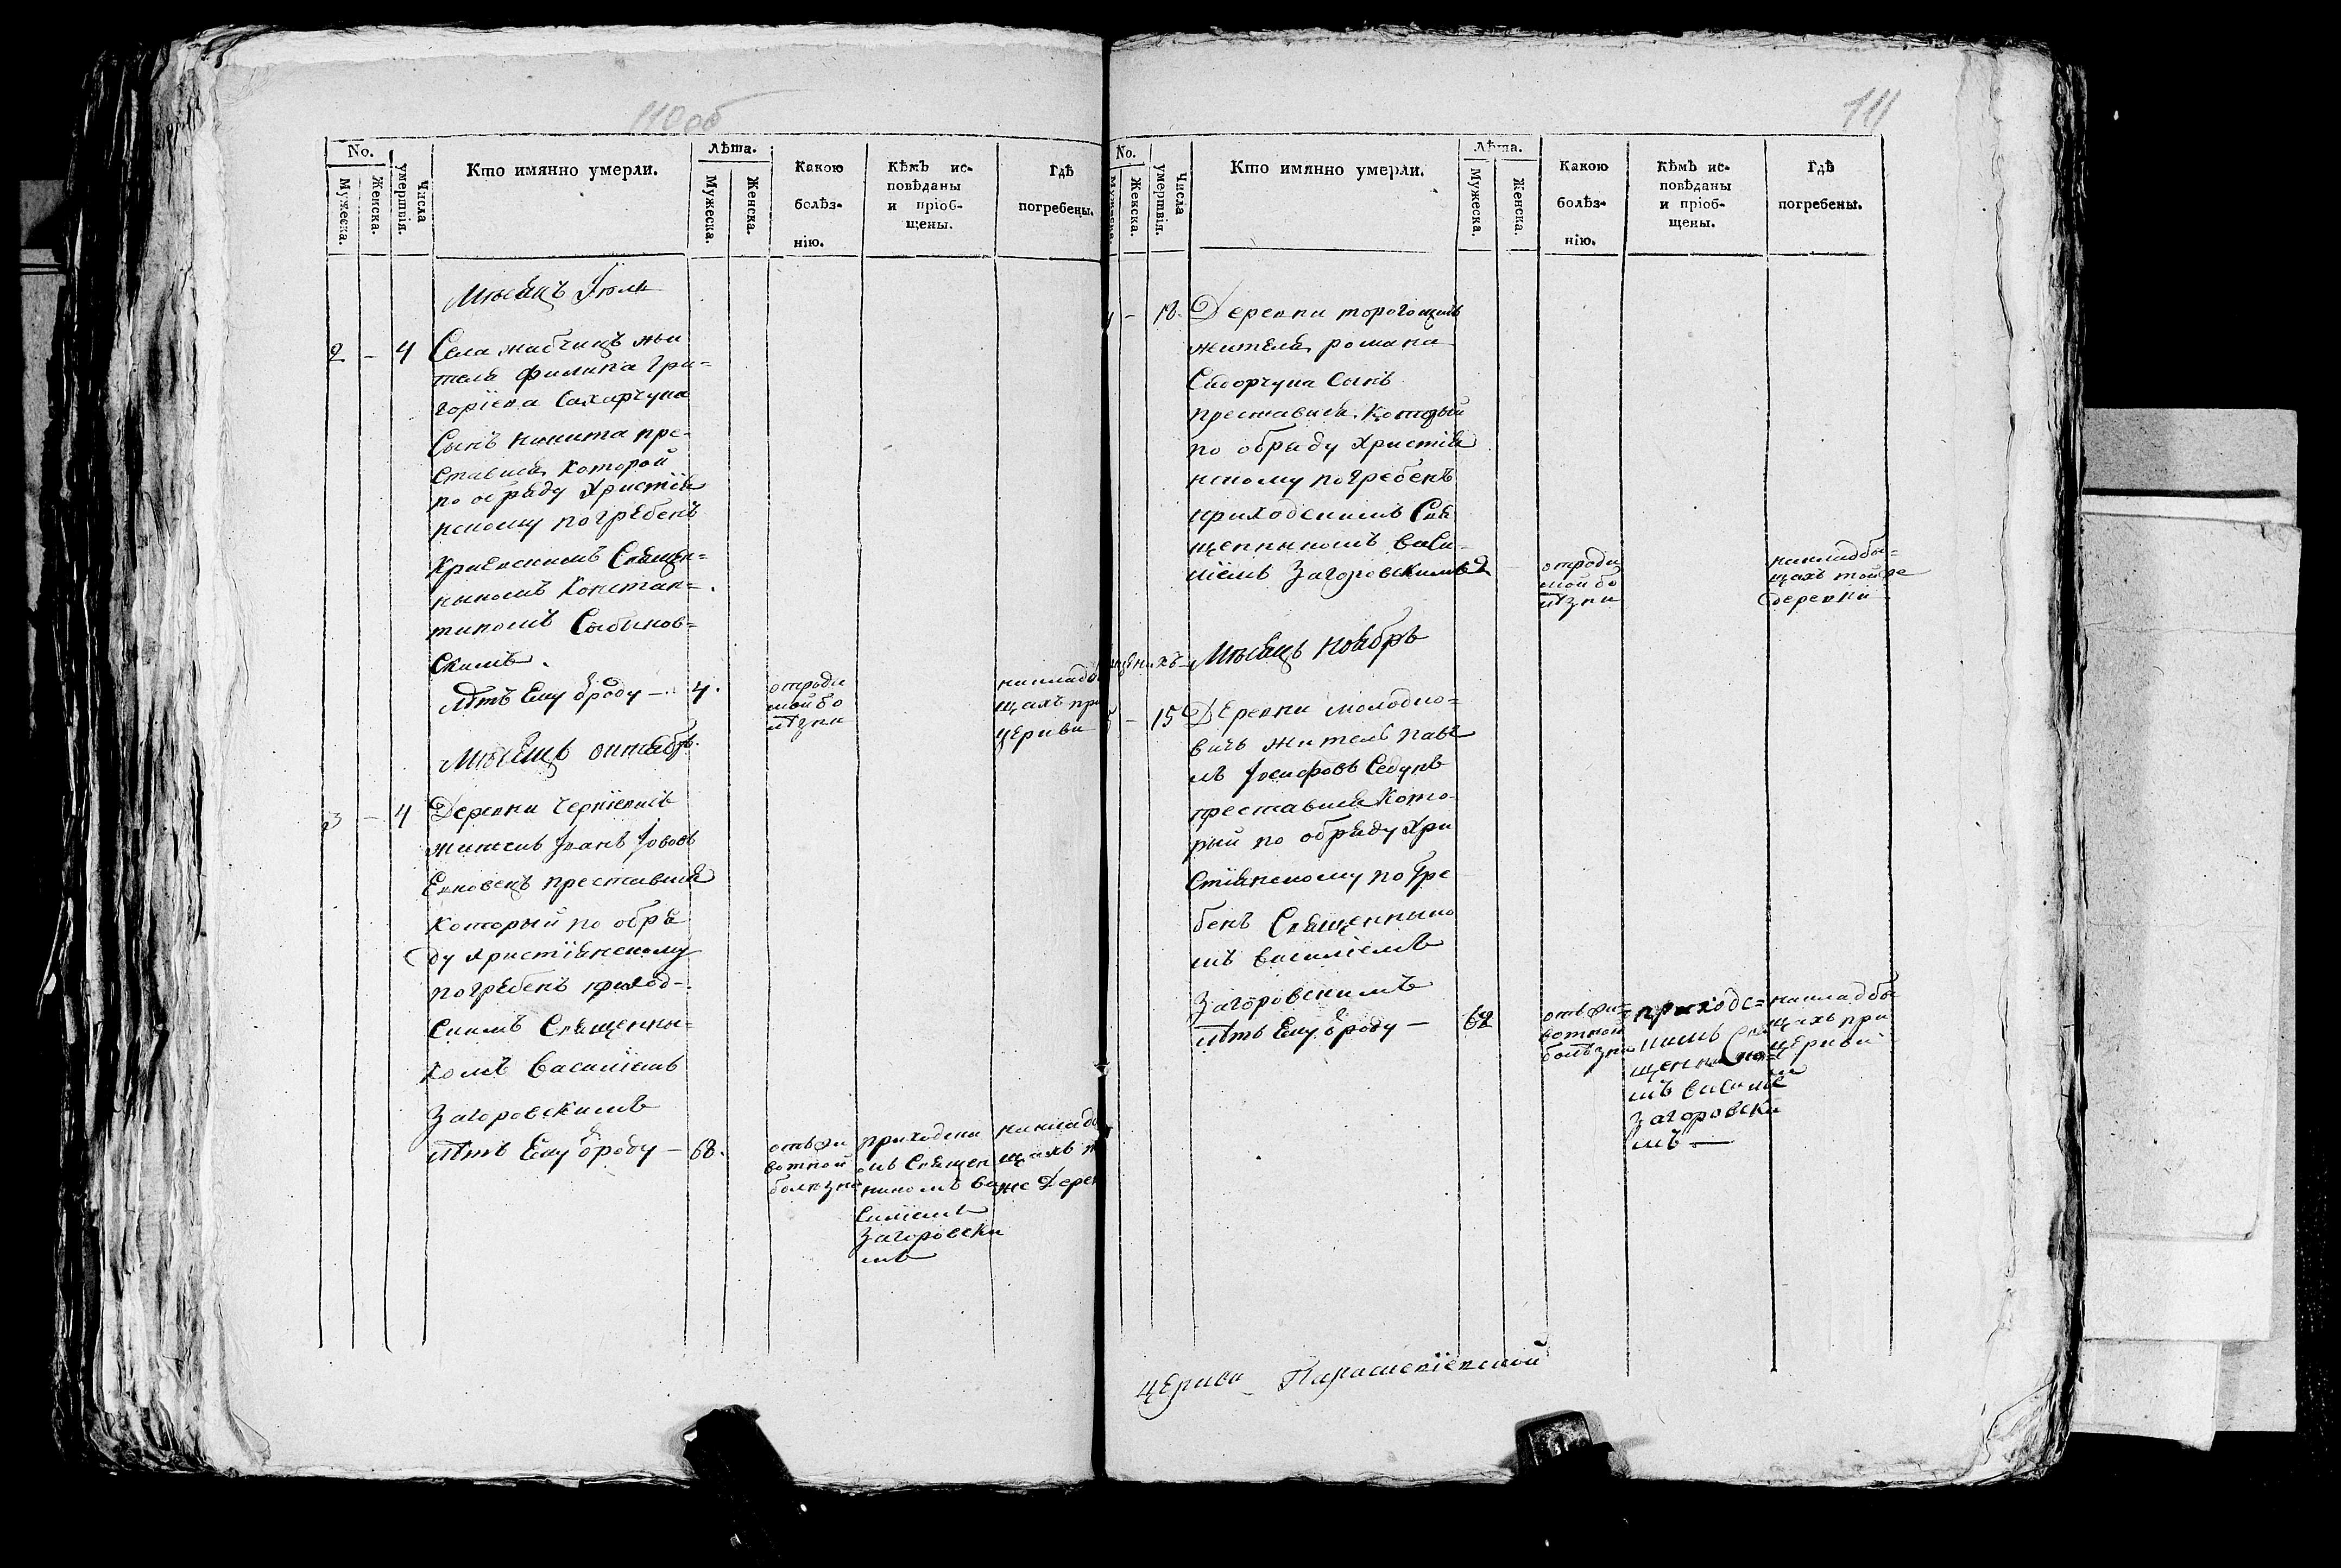 110 об
No.
Мужеска.
Женска.
Числа
умертвія.
Кто имянно умерли.
Лѣта.
Мужеска.
Женска.
Какою
болѣз-
нію.
Кѣмъ ис-
повѣданы
и пріоб-
щены.
Гдѣ
погребены.
Мѣсяцъ Іюль
2 — 4 Села жабчицъ жи
теля Филипа Гри=
горіева Сахарчука
Сынъ никита пре-
ставися которой
по обряду Христія
нскому погребенъ
Священ=
никомъ Констан=
тиномъ
скимъ.
лѣтъ Ему ѿроду — 4.
отроди
мой бо
лѣзни
накладб
щахъ при
церкви
Мѣсяцъ октябрь
3 — 4 Деревни
житель Іванъ Іововъ
преставися
который по обря
ду христіянскому
погребенъ приход-
скимъ Священни-
комъ Василіемъ
Загоровскимъ
лѣтъ Ему ѿроду — 68.
отъ жи
вотной
болѣзни
приходски
мъ Священ
никомъ Ва
силіемъ
Загоровски
мъ
накладб
щахъ т
же Дерев
111
No.
Мужеска.
Женска.
Числа
умертвія.
Кто имянно умерли.
Лѣта.
Мужеска.
Женска.
Какою
болѣз-
нію.
Кѣмъ ис-
повѣданы
и пріоб-
щены.
Гдѣ
погребены.
— 18. Деревни торгощицъ
жителя романа
Сидорчука Сынъ
преставися. который
по обряду христія
нскому погребенъ
приходскимъ Свя
щенникомъ Васи-
ліемъ Загоровскимъ 2
отроди
мой бо
лѣзни
накладби=
щахъ той же
деревни
Мѣсяцъ ноябрь
5 — 15 Деревни молодко=
вичъ житель паве
лъ Іосифовъ Седунъ
преставися кото-
рый по обряду хри
стіянскому погре
бенъ Священнико
мъ василіемъ
Загоровскимъ
лѣтъ Ему ѿроду — 62
отъ жи=
вотной
болѣзни
приходс=
кимъ Свя
щеннико=
мъ василіе
Загоровски
мъ —
накладби
щахъ при
церкви
церкви Параскевіевской